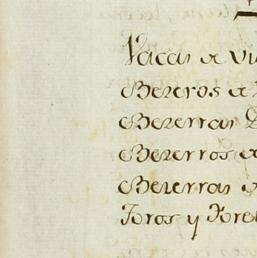 Vacas de Vi
Bezeros de
Bezerras
Bezerros de
Bezerras de
Toros y Tore